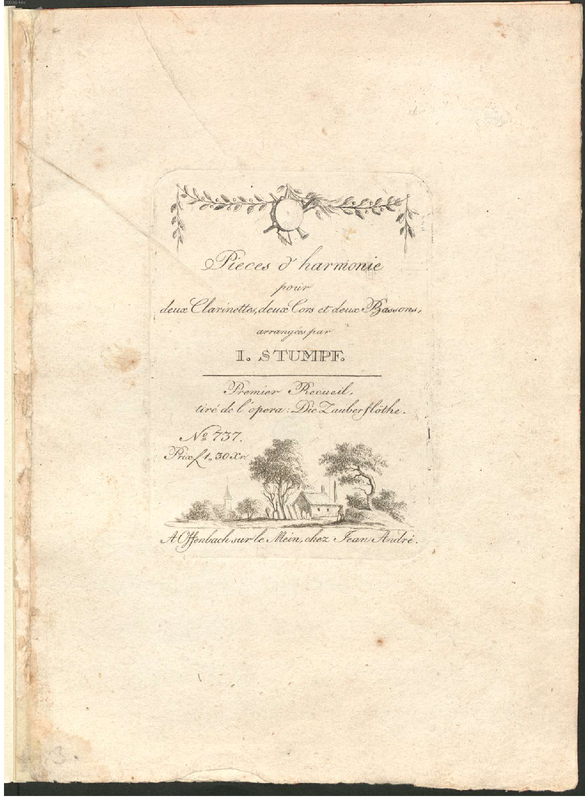 Pieces d'harmonie
pour
deux Clarinettes, deux Cors et deux Bassons,
arrangées par
I. STUMPF.
Premier Recueil,
tiré de l'opera: Die Zauberflöthe.
Nº 737.
Prix f 1, 30 Xr.
A Offenbach sur le Mein, chez Jean André.
3